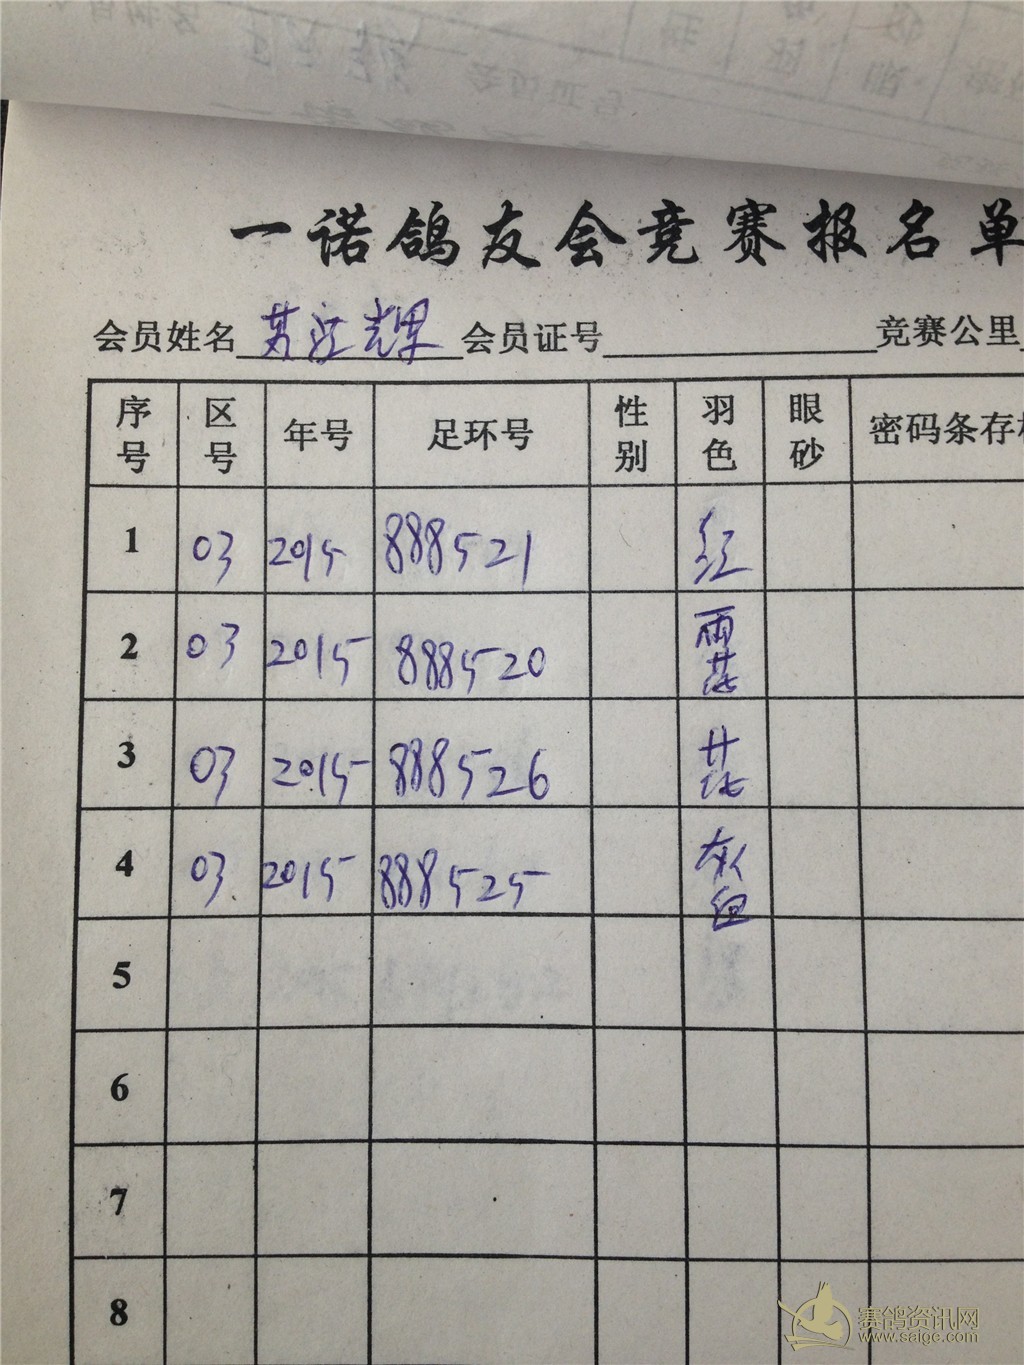 一诺鸽友会竞赛报名单
会员姓名 苏江辉 会员证号 竞赛公里
序号 区号 年号 足环号 性别 羽色 眼砂 密码条存
1 03 2015 888521 红
2 03 2015 888520 雨花
3 03 2015 888526 花
4 03 2015 888525 灰
5
6
7
8
赛鸽资讯网
www.saige.com